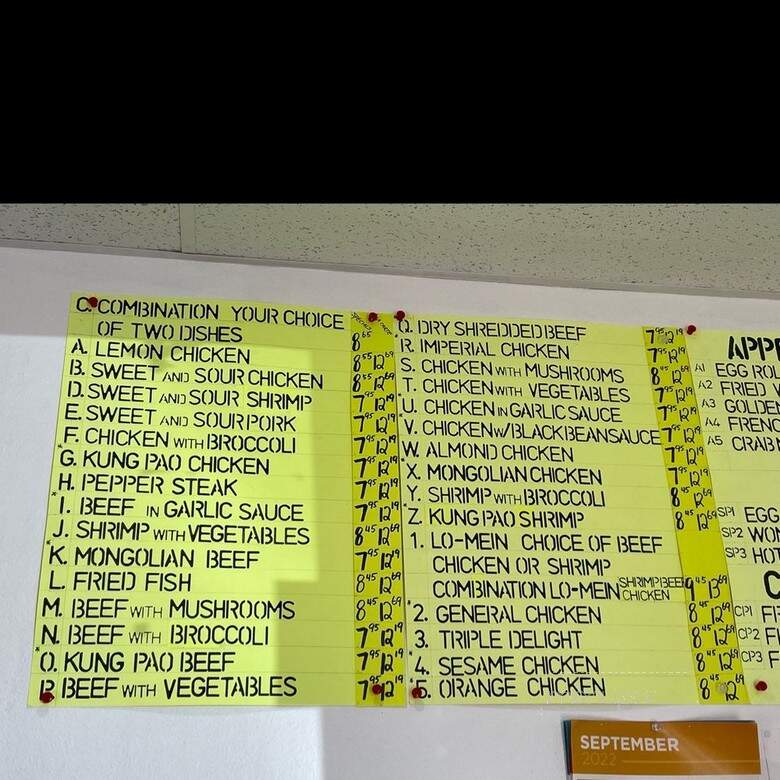 C. COMBINATION YOUR CHOICE
OF TWO DISHES 8⁶⁵
A. LEMON CHICKEN 8⁵⁵ 12⁶⁹
B. SWEET AND SOUR CHICKEN 8⁵⁵ 12⁶⁹
D. SWEET AND SOUR SHRIMP 7⁹⁵ 12¹⁹
E. SWEET AND SOUR PORK 7⁹⁵ 12¹⁹
F. CHICKEN WITH BROCCOLI 7⁹⁵ 12¹⁹
*G. KUNG PAO CHICKEN 7⁹⁵ 12¹⁹
H. PEPPER STEAK 7⁹⁵ 12¹⁹
*I. BEEF IN GARLIC SAUCE 7⁹⁵ 12¹⁹
J. SHRIMP WITH VEGETABLES 8⁴⁵ 12⁶⁹
*K. MONGOLIAN BEEF 7⁹⁵ 12¹⁹
L. FRIED FISH 8⁴⁵ 12⁶⁹
M. BEEF WITH MUSHROOMS 8⁴⁵ 12⁶⁹
N. BEEF WITH BROCCOLI 7⁹⁵ 12¹⁹
*O. KUNG PAO BEEF 7⁹⁵ 12¹⁹
P. BEEF WITH VEGETABLES 7⁹⁵ 12¹⁹
Q. DRY SHREDDED BEEF 7⁹⁵ 12¹⁹
R. IMPERIAL CHICKEN 7⁹⁵ 12¹⁹
S. CHICKEN WITH MUSHROOMS 8⁴⁵ 12⁶⁹
T. CHICKEN WITH VEGETABLES 7⁹⁵ 12¹⁹
*U. CHICKEN IN GARLIC SAUCE 7⁹⁵ 12¹⁹
V. CHICKEN W/BLACK BEAN SAUCE 7⁹⁵ 12¹⁹
W. ALMOND CHICKEN 7⁹⁵ 12¹⁹
*X. MONGOLIAN CHICKEN 7⁹⁵ 12¹⁹
Y. SHRIMP WITH BROCCOLI 8⁴⁵ 12⁶⁹
*Z. KUNG PAO SHRIMP 8⁴⁵ 12⁶⁹
1. LO-MEIN CHOICE OF BEEF
CHICKEN OR SHRIMP
COMBINATION LO-MEIN SHRIMP BEEF CHICKEN 9⁴⁵ 13⁶⁹
*2. GENERAL CHICKEN 8⁴⁵ 12⁶⁹
3. TRIPLE DELIGHT 8⁴⁵ 12⁶⁹
*4. SESAME CHICKEN 8⁴⁵ 12⁶⁹
*5. ORANGE CHICKEN 8⁴⁵ 12⁶⁹
APPE
A1 EGG ROL
A2 FRIED
A3 GOLDE
A4 FRENC
A5 CRAB
SP1 EGG
SP2 WON
SP3 HOT
C
CP1 FR
CP2 F
CP3 F
SEPTEMBER
2022